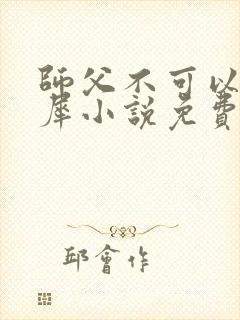 師父不可以
犀小說免費
邱會作